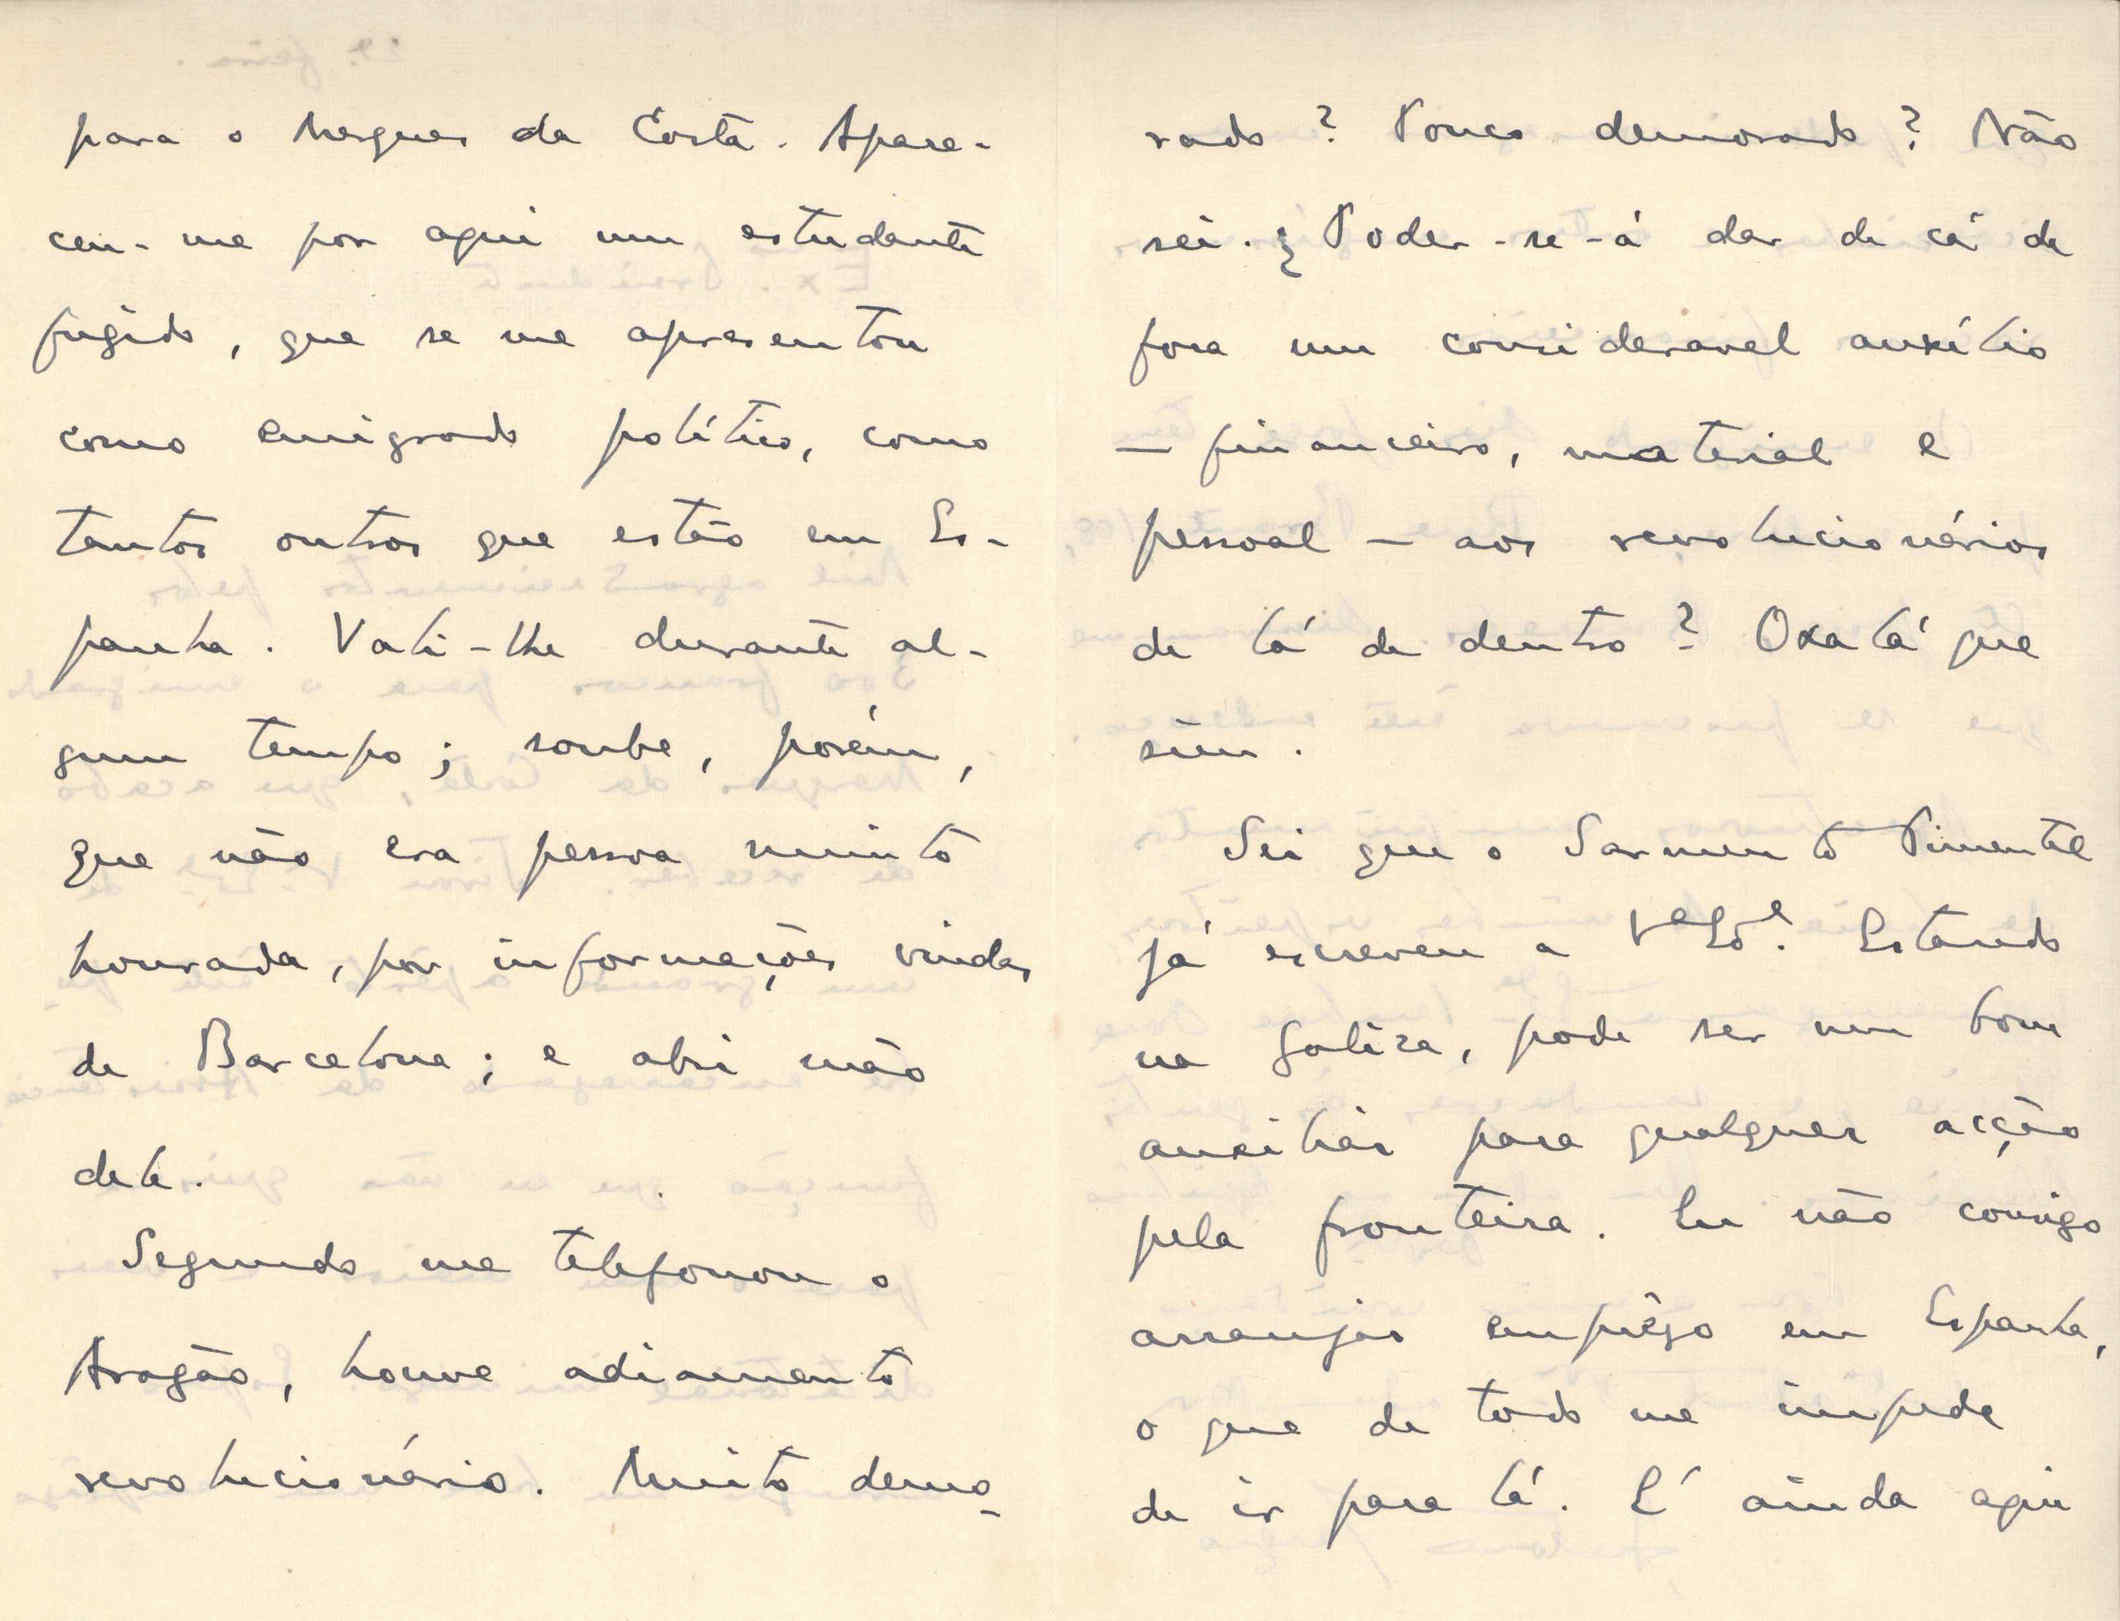 para o Marques da Costa. Apare-
ceu-me por aqui um estudante
fugido, que se me apresentou
como emigrado político, como
tantos outros que estão em Es-
panha. Vali-lhe durante al-
gum tempo; soube, porém,
que não era pessoa muito
honrada, por informações vindas
de Barcelona; e abri mão
dele.
Segundo me telefonou o
Aragão, houve adiamento
revolucionário. Muito demo-
rado? Pouco demorado? Não
sei. ¿Poder-se-á dar de cá de
fora um consideravel auxílio
— financeiro, material e
pessoal — aos revolucionários
de lá de dentro? Oxalá que
sim.
Sei que o Sarmento Pimentel
já escreveu a V.ª Ex.ª. Estando
na Galiza, pode ser um bom
auxiliar para qualquer acção
pela fronteira. Eu não consigo
arranjar emprêgo em Espanha,
o que de todo me impede
de ir para lá. É ainda aqui